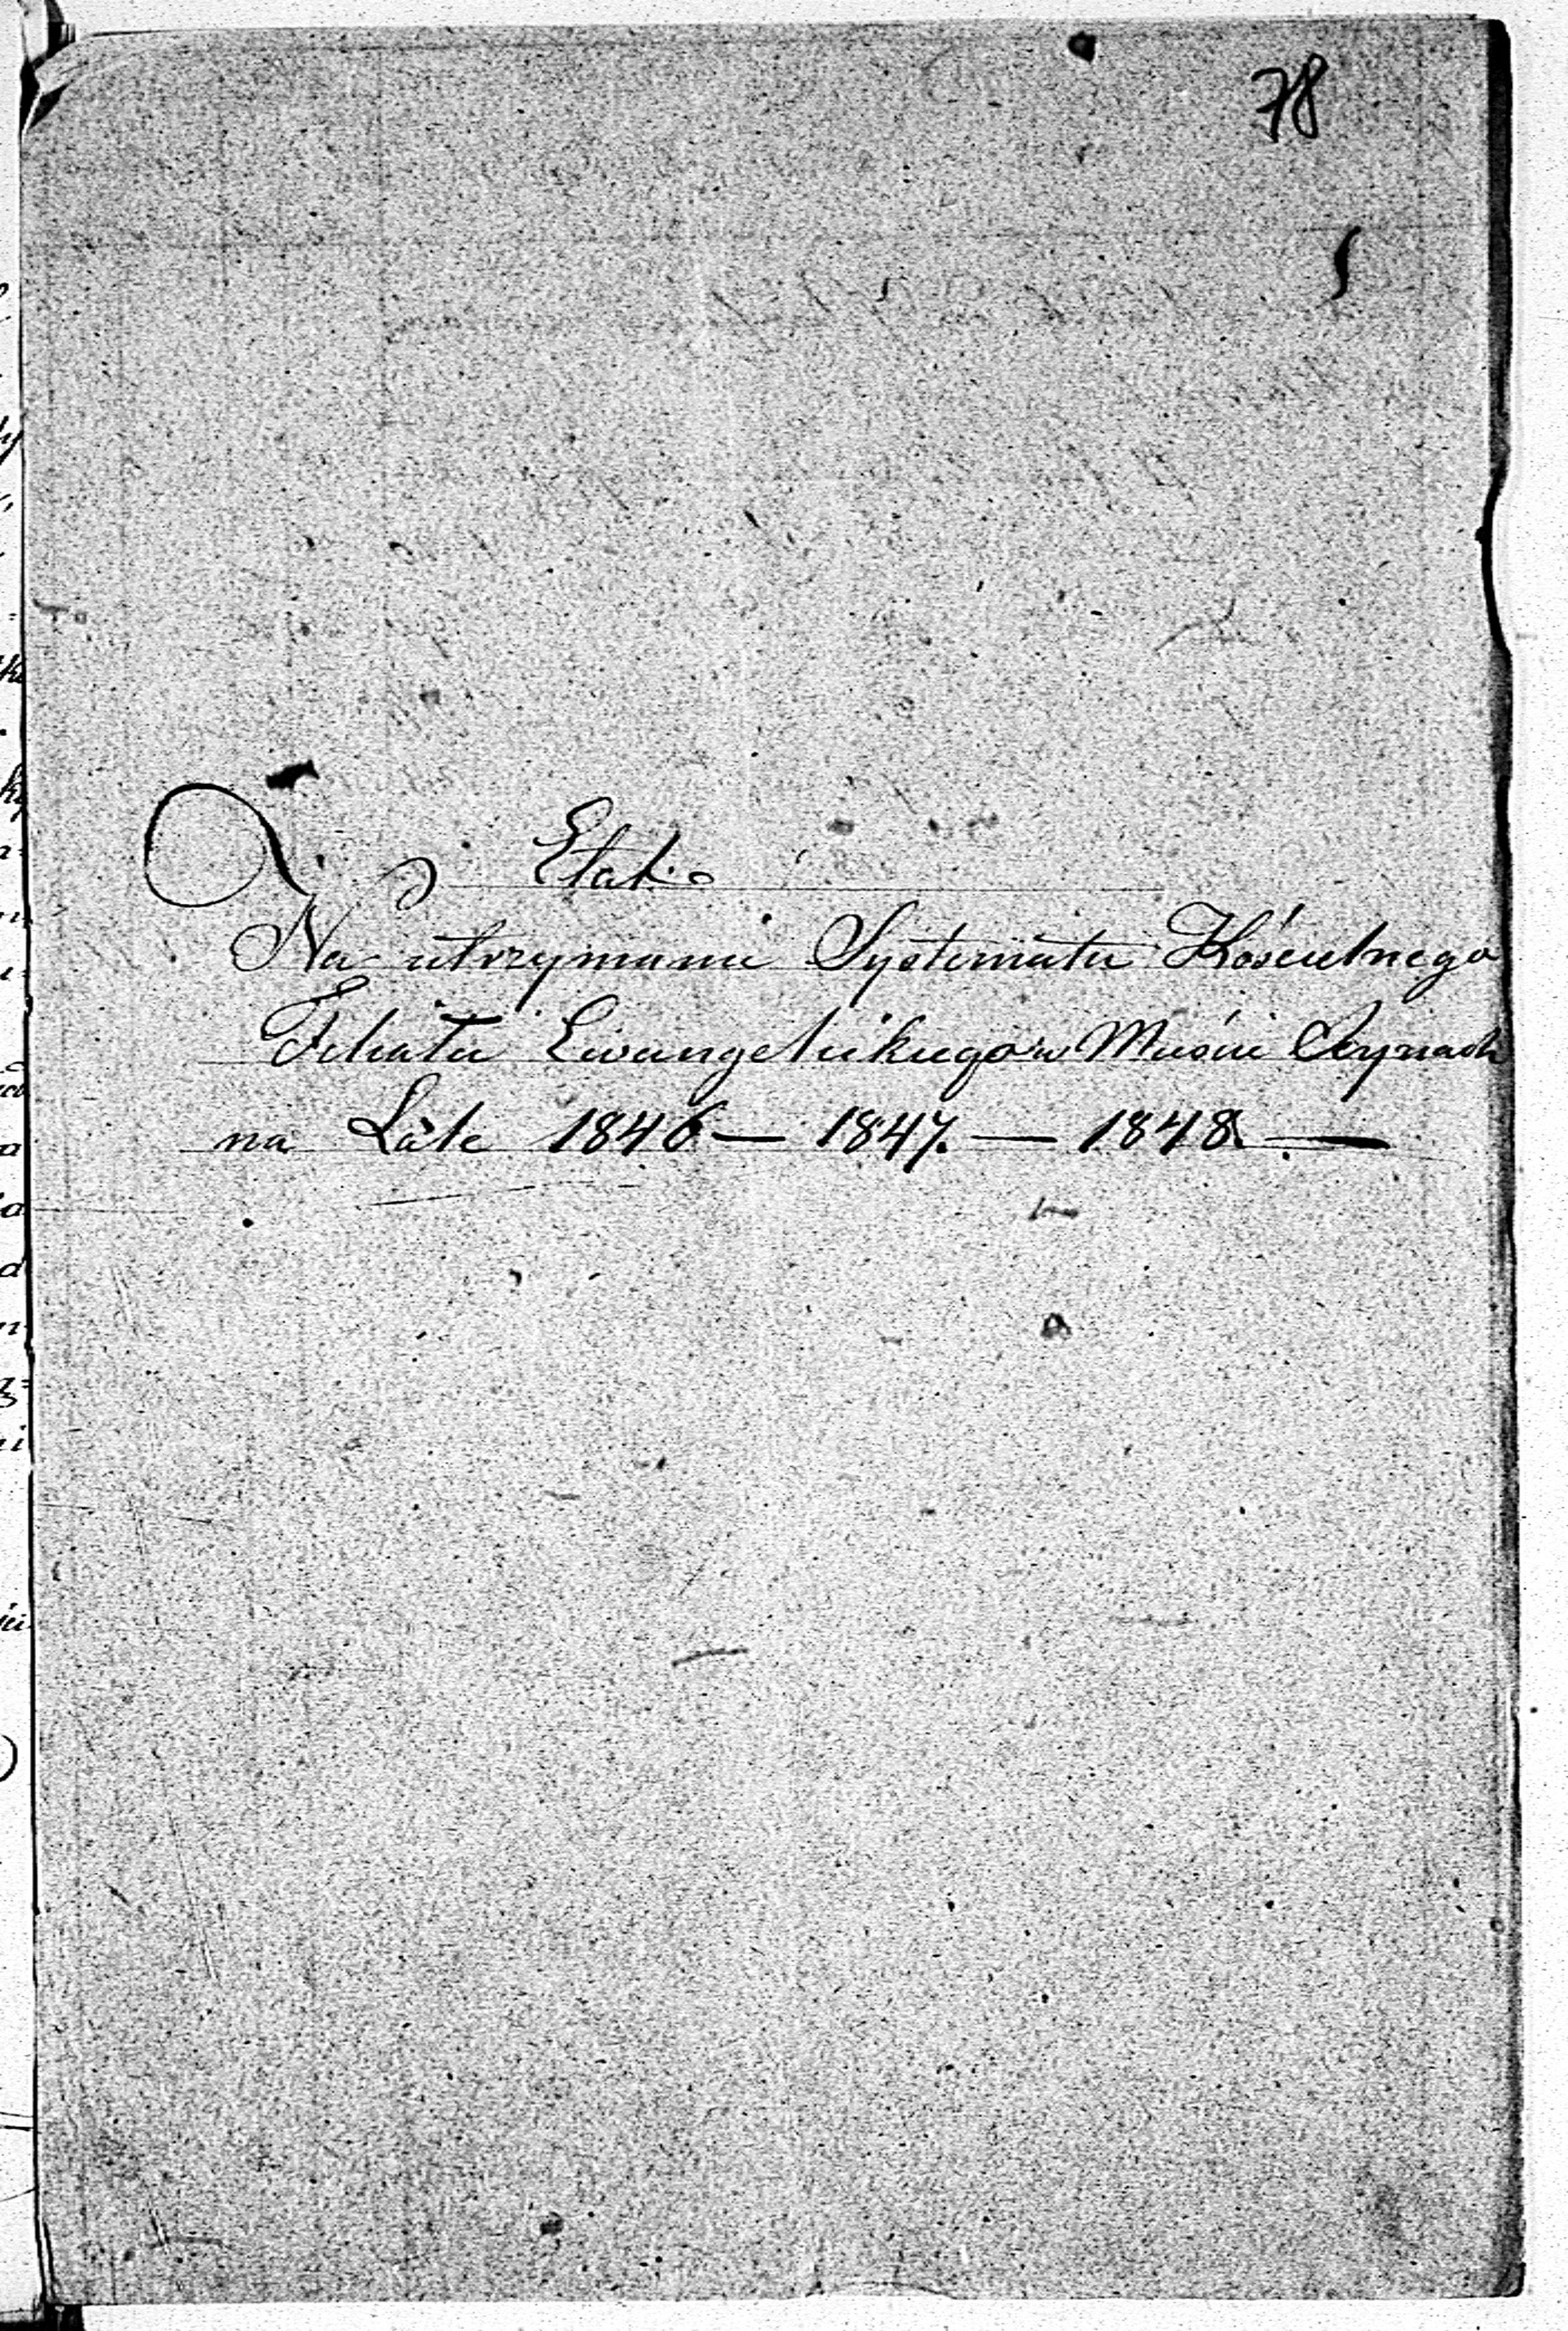 78
Etat
Na utrzymanie Systematu Kościelnego
Filiału Ewangelickiego w Mieście
na Late 1846 — 1847. — 1848. —